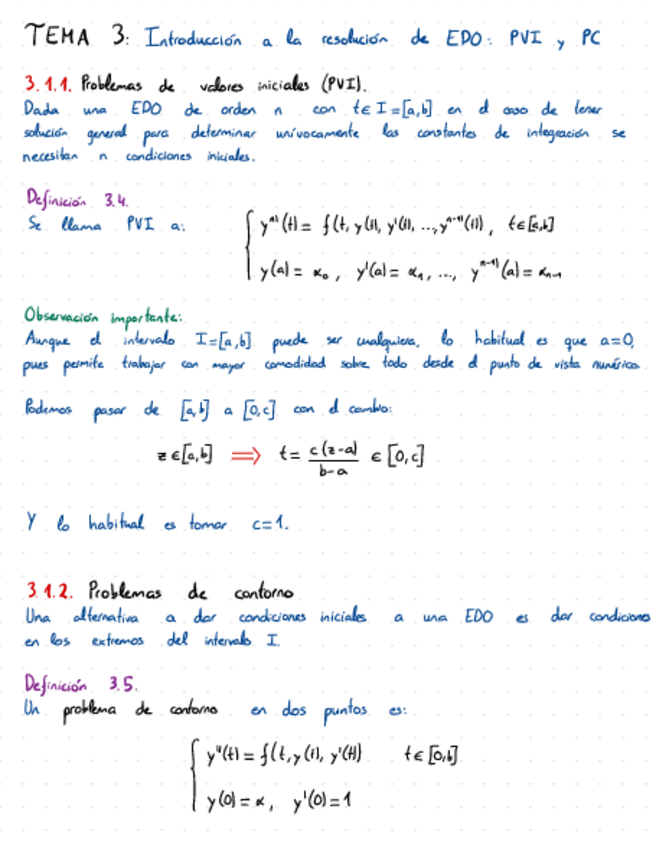 TEMA 3: Introducción a la resolución de EDO: PVI y PC
3.1.1. Problemas de valores iniciales (PVI).
Dada una EDO de orden n con t∈I=[a,b] en el caso de tener
solución general para determinar unívocamente las constantes de integración se
necesitan n condiciones iniciales.
Definición 3.4.
Se llama PVI a: { y^(n)(t) = f(t, y(t), y'(t), ..., y^(n-1)(t)), t∈[a,b]
y(a) = α₀, y'(a) = α₁, ..., y^(n-1)(a) = αₙ₋₁
Observación importante:
Aunque el intervalo I=[a,b] puede ser cualquiera, lo habitual es que a=0,
pues permite trabajar con mayor comodidad sobre todo desde el punto de vista numérico
Podemos pasar de [a,b] a [0,c] con el cambio:
z∈[a,b] ⟹ t = c(z-a)/(b-a) ∈ [0,c]
Y lo habitual es tomar c=1.
3.1.2. Problemas de contorno
Una alternativa a dar condiciones iniciales a una EDO es dar condiciones
en los extremos del intervalo I
Definición 3.5.
Un problema de contorno en dos puntos es:
{ y''(t) = f(t, y(t), y'(t)) t∈[0,b]
y(0) = α, y'(0) = 1